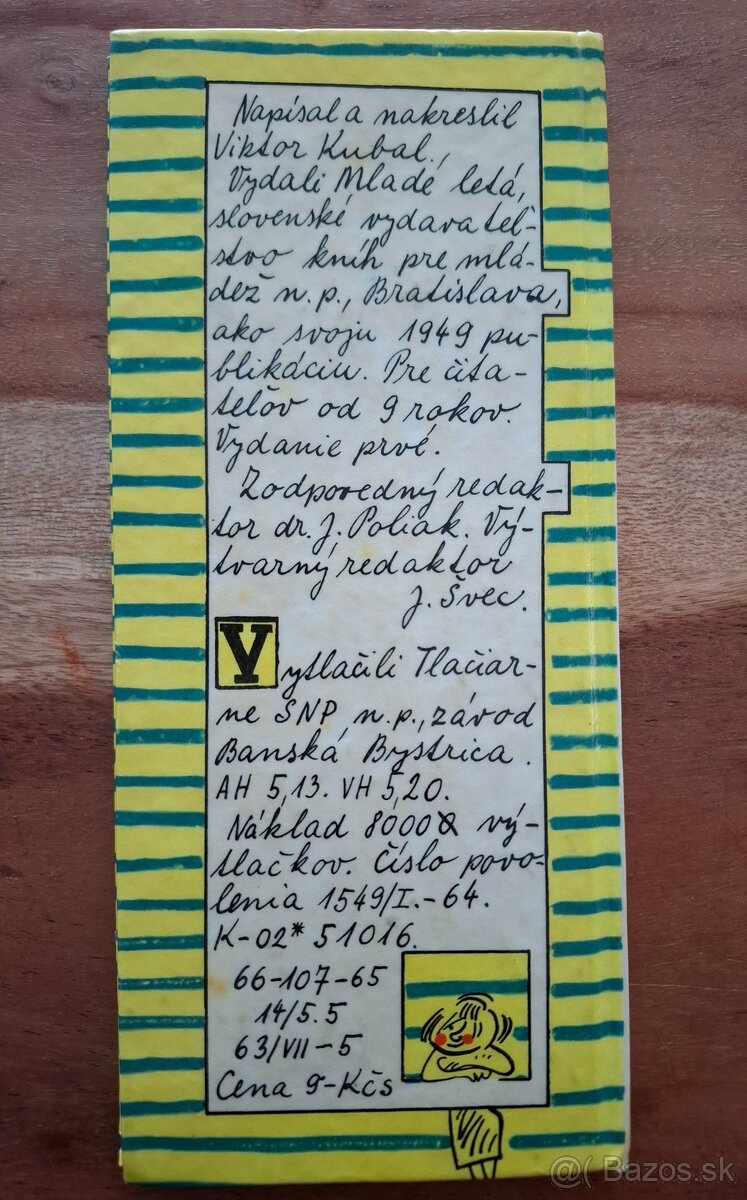 Napísal a nakreslil
Viktor Kubal.,
Vydali Mladé letá,
slovenské vydavateľ-
stvo kníh pre mlá-
dež n.p., Bratislava,
ako svoju 1949 pu-
blikáciu. Pre čita-
teľov od 9 rokov.
Vydanie prvé.
Zodpovedný redak-
tor dr. J. Poliak. Vý-
tvarný redaktor
J. Švec.
Vytlačili Tlačiar-
ne SNP, n.p., závod
Banská Bystrica.
AH 5,13. VH 5,20.
Náklad 8000 vý-
tlačkov. Číslo povo-
lenia 1549/I.-64.
K-02* 51016.
66-107-65
14/5.5
63/VII-5
Cena 9-Kčs
@( Bazos.sk